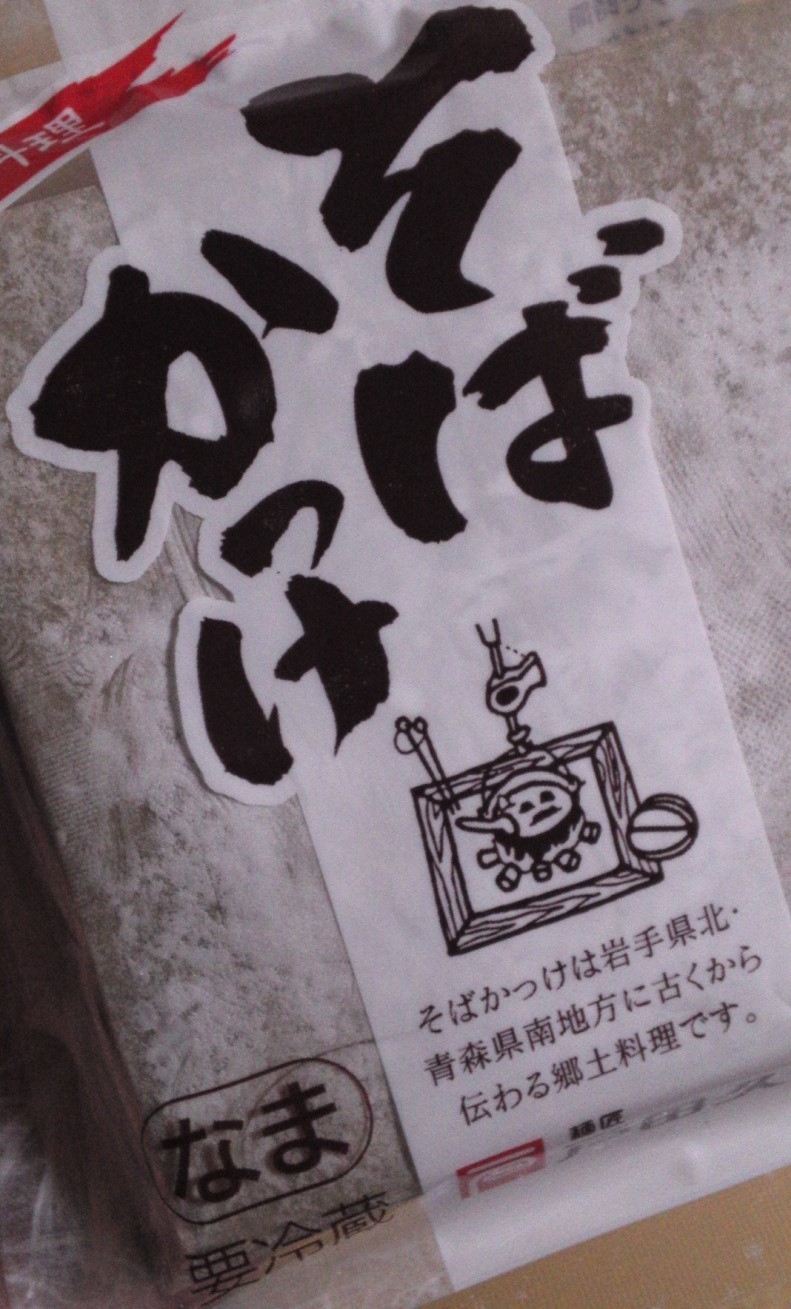 料理
そば
かっけ
そばかっけは岩手県北・
青森県南地方に古くから
伝わる郷土料理です。
麺匠
なま
要冷蔵